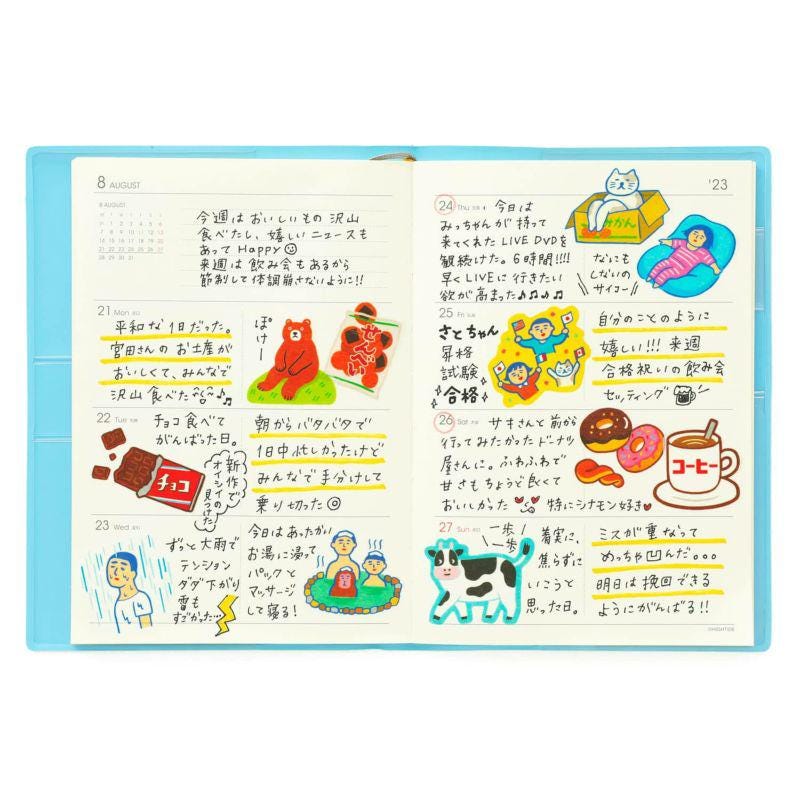 8 AUGUST
8 AUGUST
今週は おいしいもの 沢山
食べたし、嬉しい ニュースも
あって Happy
来週は 飲み会も あるから
節制して 体調崩さないように!!
21 Mon
平和な1日だった。
宮田さんの お土産が
おいしくて、みんなで
沢山 食べた
ぽけー
せんべい
22 Tue
チョコ 食べて
がんばった日。
新作で
オイシイの
見つけた
チョコ
朝から バタバタで
1日中 忙しかったけど
みんなで 手分けして
乗り切った
23 Wed
ずっと 大雨で
テンション
ダダ下がり
雷も
すごかった…
今日は あったかい
お湯に 浸って
パックと
マッサージ
して 寝る!
'23
24 Thu
今日は
みっちゃんが 持って
来てくれた LIVE DVDを
観続けた。6時間!!!!
早く LIVEに 行きたい
欲が 高まった♪♪♪♪
みかん
なにも
しないの
サイコー
25 Fri
さとちゃん
昇格
試験
合格
自分のことのように
嬉しい!!! 来週
合格祝いの飲み会
セッティング
26 Sat
サキさんと 前から
行ってみたかった ドーナツ
屋さんに。ふわふわで
甘さも ちょうど良くて
おいしかった 特にシナモン好き
コーヒー
27 Sun
一歩
一歩
着実に、
焦らずに
いこうと
思った日。
ミスが 重なって
めっちゃ 凹んだ。。。
明日は 挽回できる
ようにがんばる!!
©HIGHTIDE